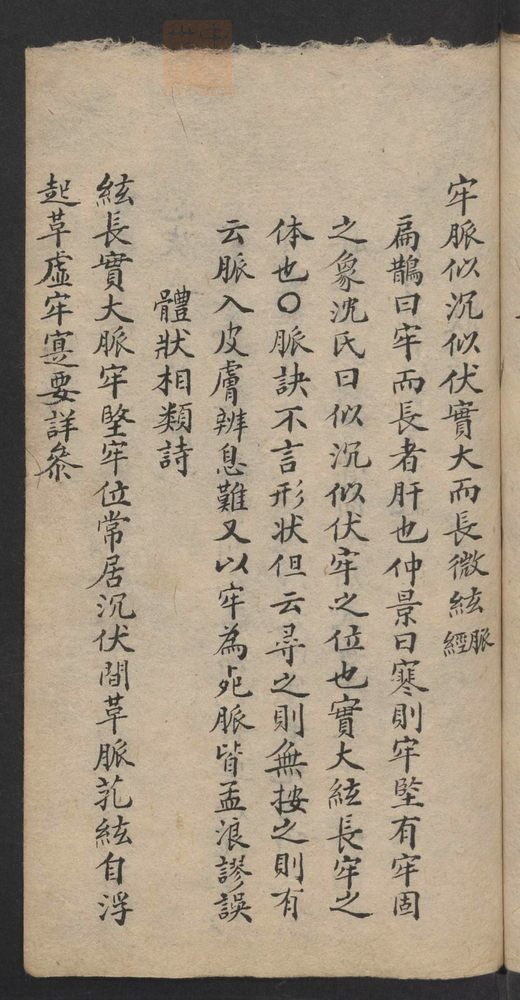 牢脈似沉似伏實大而長微絃脈經
扁鵲曰牢而長者肝也仲景曰寒則牢堅有牢固
之象沈氏曰似沉似伏牢之位也實大絃長牢之
体也〇脈訣不言形狀但云尋之則無按之則有
云脈入皮膚辨息難又以牢為死脈皆孟浪謬誤
體狀相類詩
絃長實大脈牢堅牢位常居沉伏間革脈芤絃自浮
起革虛牢寔要詳叅